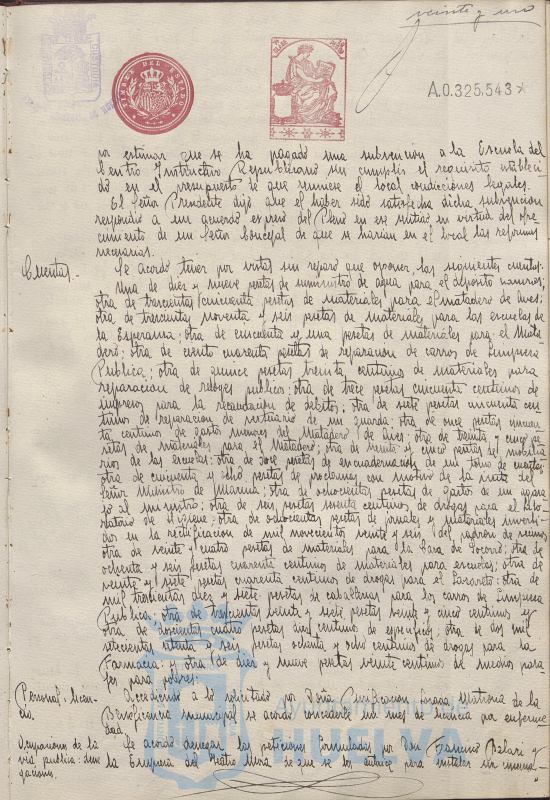 veinte y uno
TIMBRE DEL ESTADO
A.0.325.543*
por estimar que se ha pagado una subvención a la Escuela del
Centro Instructivo Republicano sin cumplir el requisito estableci-
do en el presupuesto de que reuniese el local condiciones legales.
El Señor Presidente dijo que el haber sido satisfecha dicha subvencion
respondió a un acuerdo expreso del Pleno en ese sentido en virtud del ofre-
cimiento de un Señor Concejal de que se harian en el local las reformas
necesarias.
Cuentas.
Se acordo tener por vistas sin reparo que oponer las siguientes cuentas:
Una de diez y nueve pesetas de suministro de agua para el deposito
otra de trescientas cincuenta pesetas de materiales para el matadero de aves;
otra de trescientas noventa y seis pesetas de materiales para las escuelas de
la Esperanza; otra de cincuenta y una pesetas de materiales para el Mata-
dero; otra de ciento cuarenta pesetas de reparacion de carros de Limpieza
Publica; otra de quince pesetas treinta centimos de materiales para
reparacion de relojes publicos; otra de trece pesetas cincuenta centimos de
impresos para la recaudacion de debitos; otra de siete pesetas cincuenta cen-
timos de reparacion de vestuario de un guarda; otra de once pesetas cincuen-
ta centimos de gastos menores del Matadero de aves; otra de treinta y cinco pe-
setas de materiales para el Matadero; otra de treinta y cinco pesetas del mobilia-
rio de las escuelas; otra de doce pesetas de encuadernacion de un tomo de cuentas;
otra de cincuenta y ocho pesetas de proclamas con motivo de la visita del
Señor Ministro de Marina; otra de ochocientas pesetas de gastos de un agasa-
jo al ministro; otra de seis pesetas sesenta centimos de drogas para el Labo-
ratorio de Higiene; otra de ochocientas pesetas de jornales y materiales inverti-
dos en la rectificacion de mil novecientos veinte y seis del padron de vecinos
otra de veinte y cuatro pesetas de materiales para la Casa de Socorro; otra de
ochenta y seis pesetas cuarenta centimos de materiales para escuelas; otra de
veinte y siete pesetas cuarenta centimos de drogas para el Lazareto; otra de
mil trescientas diez y siete pesetas de caballerias para los carros de Limpieza
Publica; otra de trescientas treinta y siete pesetas veinte y cinco centimos y
otra de doscientas cuatro pesetas diez centimos de especificos; otra de dos mil
setecientas setenta y seis pesetas ochenta y ocho centimos de drogas para la
Farmacia; y otra de diez y nueve pesetas veinte centimos de medios pasa-
jes para pobres.
Personal: licen-
cia.
Accediendo a lo solicitado por Doña Purificacion matrona de la
Beneficencia municipal se acordo concederle un mes de licencia por enferme-
dad.
Ocupaciones de la
via publica: dene-
gaciones.
Se acordo denegar las peticiones formuladas por Don Francisco y
la Empresa del Teatro Mora de que se les autorice para instalar un
Ayuntamiento de
HUELVA